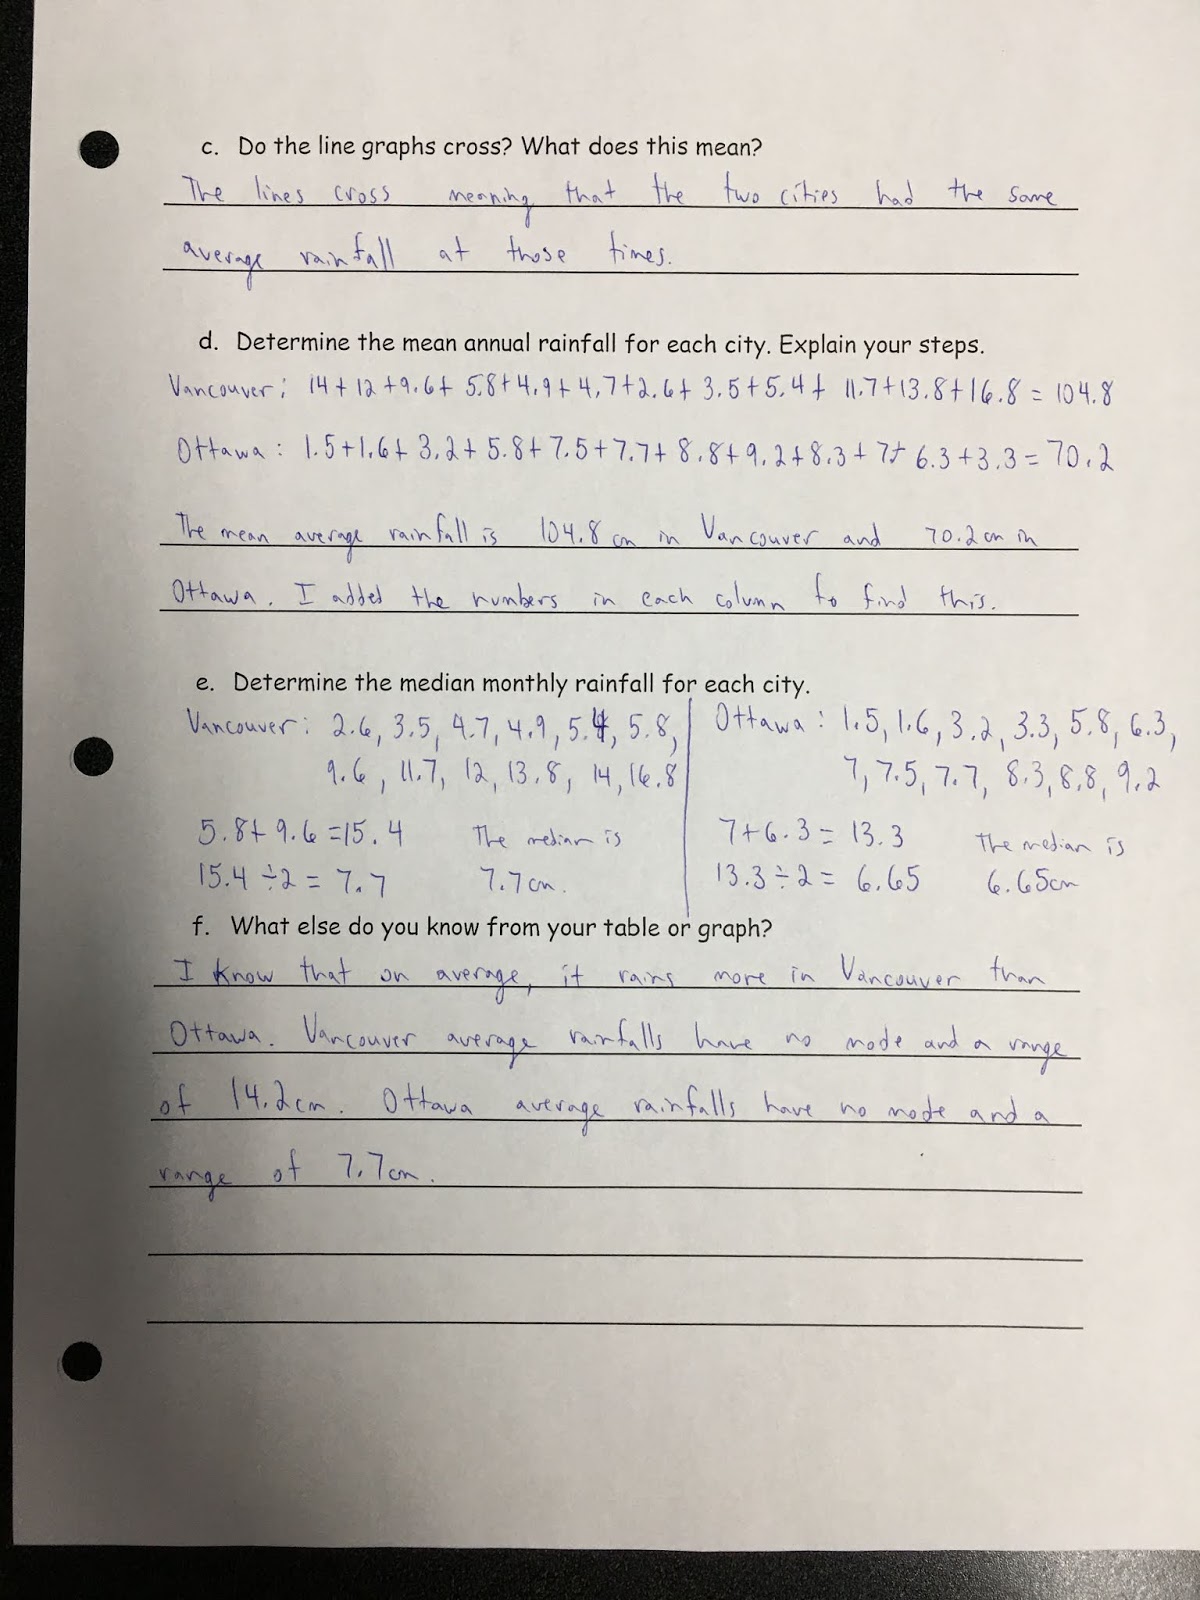 c. Do the line graphs cross? What does this mean?
The lines cross meaning that the two cities had the same
average rainfall at those times.
d. Determine the mean annual rainfall for each city. Explain your steps.
Vancouver: 14+12+9.6+5.8+4.9+4.7+2.6+3.5+5.4+11.7+13.8+16.8=104.8
Ottawa: 1.5+1.6+3.2+5.8+7.5+7.7+8.8+9.2+8.3+7+6.3+3.3=70.2
The mean average rainfall is 104.8 cm in Vancouver and 70.2 cm in
Ottawa. I added the numbers in each column to find this.
e. Determine the median monthly rainfall for each city.
Vancouver: 2.6, 3.5, 4.7, 4.9, 5.4, 5.8,
9.6, 11.7, 12, 13.8, 14, 16.8
5.8+9.6=15.4 The median is
15.4÷2=7.7 7.7cm.
Ottawa: 1.5, 1.6, 3.2, 3.3, 5.8, 6.3,
7, 7.5, 7.7, 8.3, 8.8, 9.2
7+6.3=13.3 The median is
13.3÷2=6.65 6.65cm
f. What else do you know from your table or graph?
I know that on average, it rains more in Vancouver than
Ottawa. Vancouver average rainfalls have no mode and a range
of 14.2cm. Ottawa average rainfalls have no mode and a
range of 7.7cm.